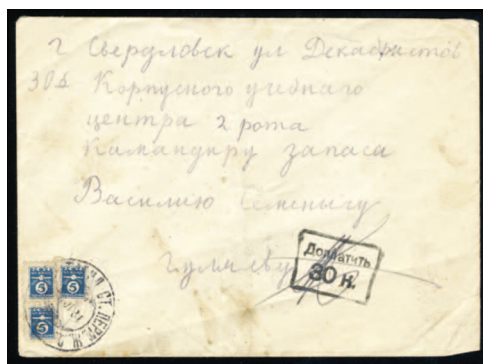 г Свердловск ул Декабристов
30А Корпусного учебнаго
центра 2 рота
Камандиру запаса
Василию Семенычу
Гуляеву
Доплатить
30 к.
5 5
5